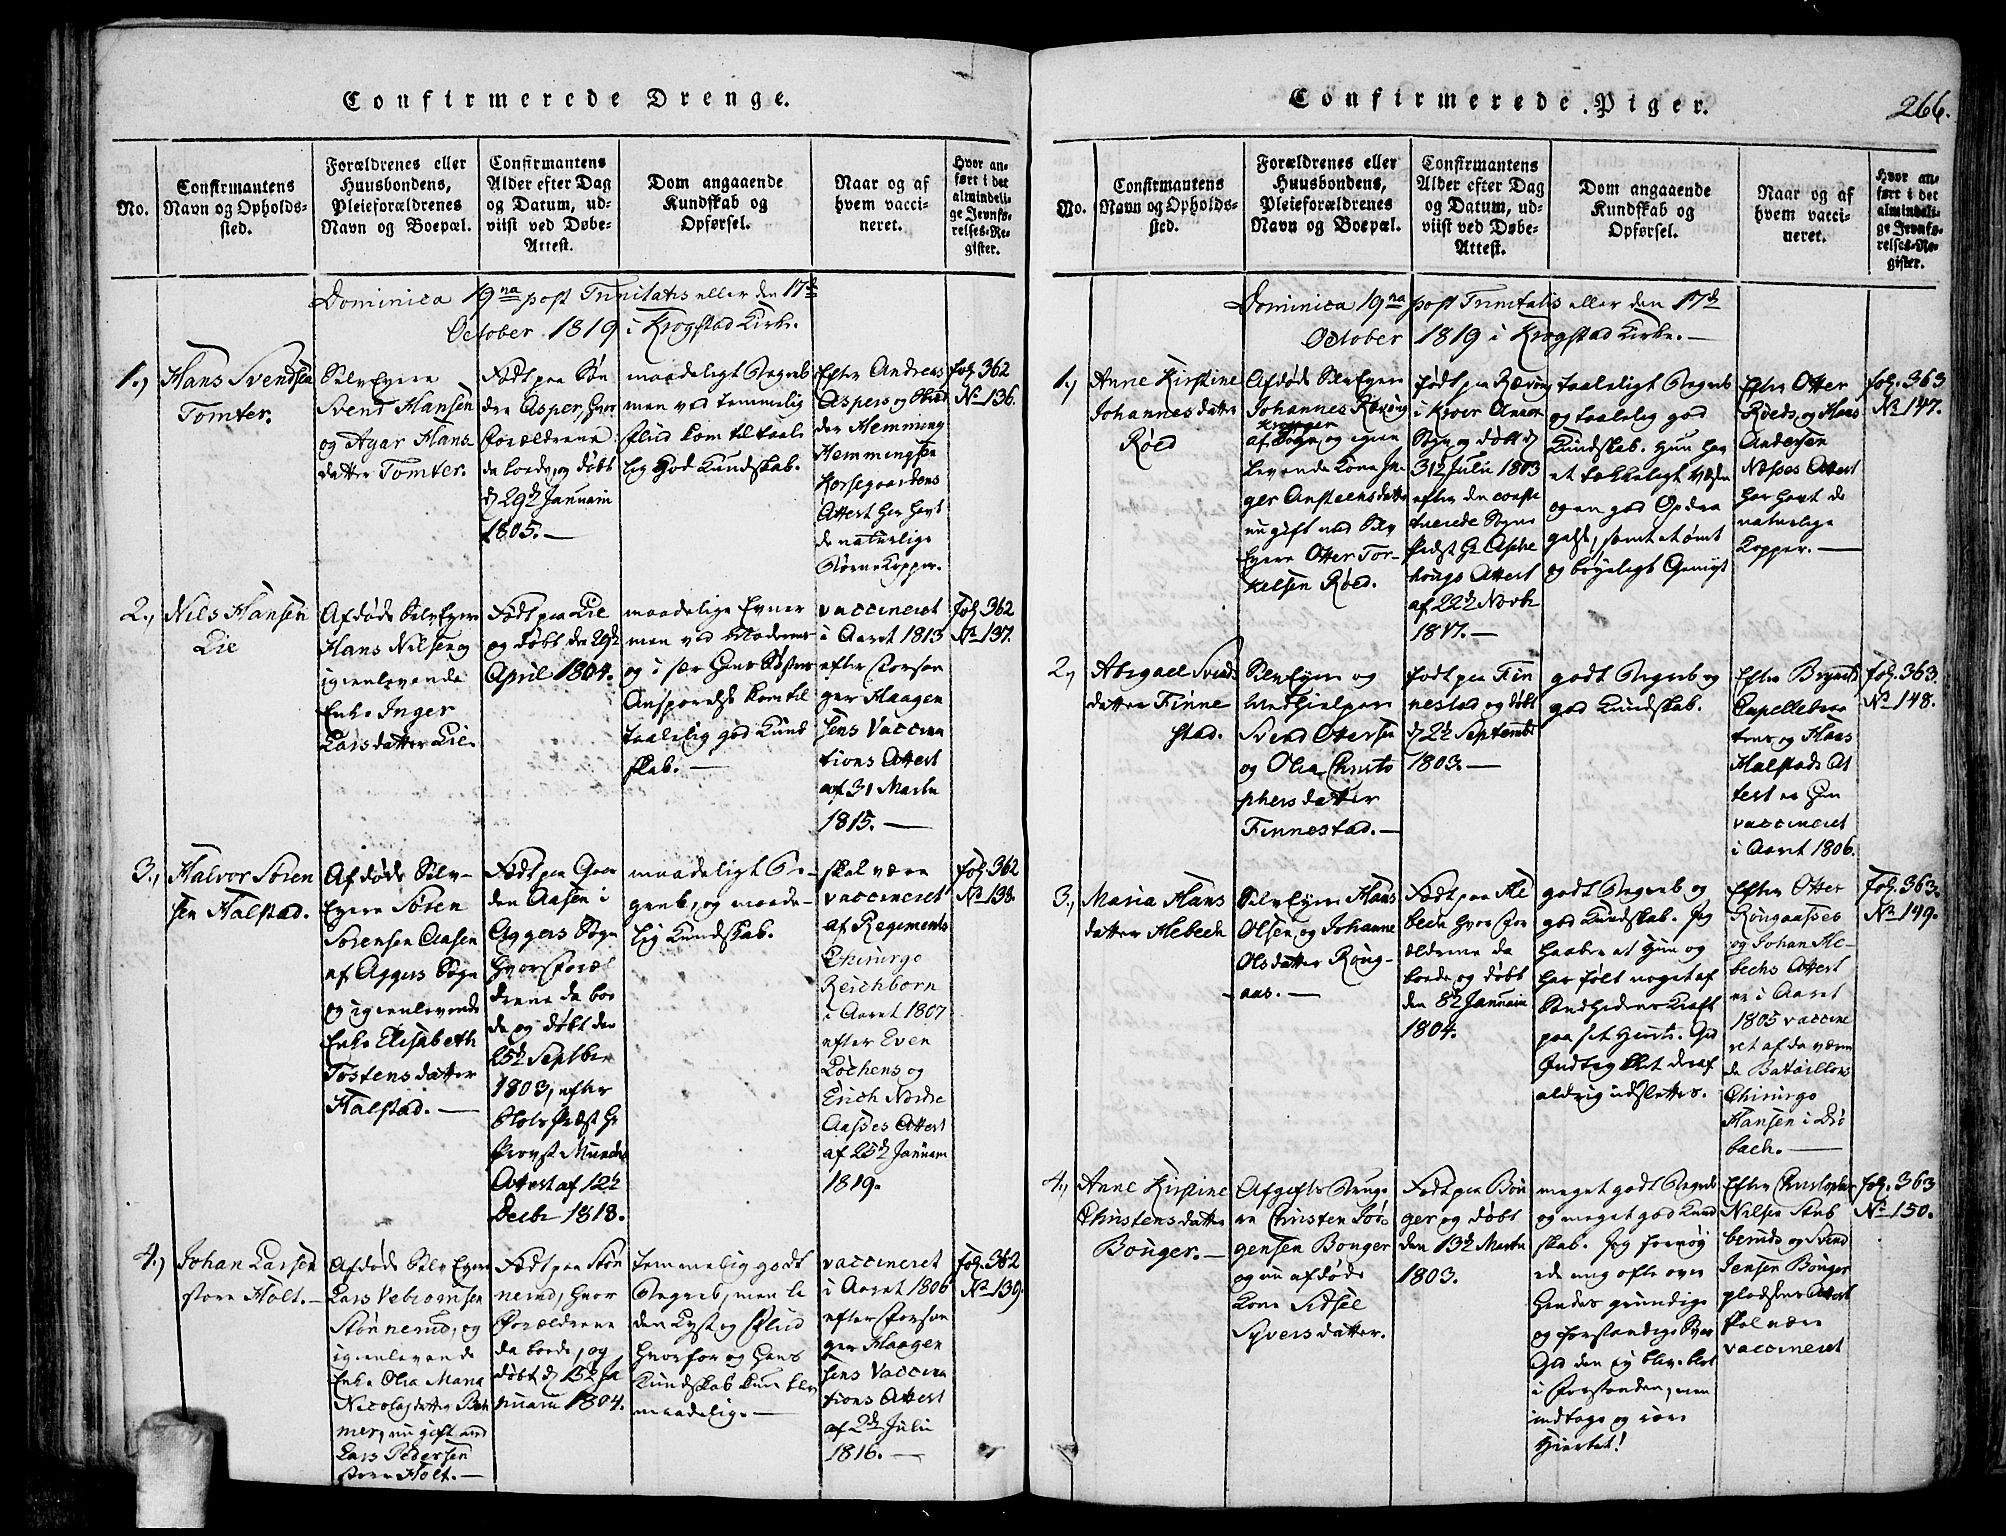 Confirmerede Drenge.
No.
Confirmantens
Navn og Opholds-
sted.
Forældrenes eller
Huusbondens,
Pleieforældrenes
Navn og Boepæl.
Confirmantens
Alder efter Dag
og Datum, ud-
viist ved Døbe-
Attest.
Dom angaaende
Kundskab og
Opførsel.
Naar og af
hvem vacci-
neret.
Hvor an-
ført i det
almindeli-
ge Jevnfø-
relses-Re-
gister.
Dominica 19na post Trinitatis eller den 17de
October 1819 i Krogstad Kirke.
1.,
Hans Svendsen
Tomter.
Selv Eyere
Svend Hansen
og Agar Hans
datter Tomter.
Født paa Søn
dre Asper, hvor
Forældrene
da boede, og døbt
d 29d Januarii
1805. —
maadeligt Begreb
men ved temmelig
Fliid kom til taale
lig God Kundskab.
Efter Andreas
Aspers og
der Hemming
Hemmingsen
Korsegaardens
Attest har havt
de naturlige
Børne Kopper.
fol. 362
No 136.
2.,
Nils Hansen
Lie
Afdøde Selv Eyer
Hans Nilsen og
igienlevende
Enke Inger
Larsdatter Lie.
Født paa Lie
og døbt den 29d
April 1804.
maadelige Evner
men ved Moderens
og i sær hans Søsters
Ansporelse kom til
taalelig god Kund
skab. —
vaccineret
i Aaret 1813
efter Corson
ger Haagen
sens Vaccina
tions Attest
af 31 Martii
1815. —
fol. 362
No 137.
3.,
Halvor Søren
sen Halstad.
Afdøde Selv-
Eyere Søren
Sørensen Aasen
af Aggers Sogn
og igienlevende
Enke Elisabeth
Tostensdatter
Halstad. —
Født paa Gaar
den Aasen i
Aggers Sogn
hvor Foræl
drene da bo
de, og døbt den
25d Septbr
1803, efter
Slots Præst Hr
Provst Munchs
Attest af 12d
Decbr 1818.
maadeligt Be-
greb, og maade-
lig Kundskab.
skal være
vaccineret
af Regiments
Chirurgo
Reichborn
i Aaret 1807
efter Even
Løchens og
Erich Nordre
Aasses Attest
af 25d Januarii
1819.
fol. 362
No 138.
4.,
Johan Larsen
store Holt. —
Afdøde Selv Eyer
Lars Vebiørnsen
Stønnerud, og
igienlevende
Enke Olia Maria
Nicolaydatter Bøh
mer, nu gift med
Lars Pedersen
store Holt. —
Født paa Støn
nerud, hvor
Forældrene
da boede, og
døbt d 15d Ja
nuarii 1804.
temmelig godt
Begreb, men li
den Lyst og Fliid
hvorfor og hans
Kundskab kun blev
maadelig. —
vaccineret
i Aaret 1806
efter Corson
ger Haagen
sens Vaccina
tions Attest
af 2d Julii
1816. —
fol. 362
No 139.
Confirmerede Piger.
266.
No.
Confirmantens
Navn og Opholds-
sted.
Forældrenes eller
Huusbondens,
Pleieforældrenes
Navn og Boepæl.
Confirmantens
Alder efter Dag
og Datum, ud-
viist ved Døbe-
Attest.
Dom angaaende
Kundskab og
Opførsel.
Naar og af
hvem vacci-
neret.
Hvor an-
ført i det
almindeli-
ge Jevnfø-
relses-Re-
gister.
Dominica 19na post Trinitatis eller den 17d
October 1819 i Krogstad Kirke. —
1.,
Anne Kirstine
Johannesdatter
Røed
Afdøde Selv Eyer
Johannes Røxong
af Sogn, og igien
levende Kone In
ger Ansteensdatter
nu gift med Selv
Eyere Otter Tor-
kelsen Røed.
født paa
i Kroer Annex
Sogn og døbt d
31d Julii 1803
efter den consti
tuerede Sogne
Præst Hr Asche
hougs Attest
af 22d Novbr
1817. —
taaleligt Begreb
og taalelig god
Kundskab. Hun har
et tækkeligt Væsen
og en god Opdra
gelse, samt et ømt
og bøyeligt Gemyt
Efter Otter
Røeds, og Hans
Andersen
Næsses Attest
har havt de
naturlige
Kopper. —
fol. 363
No 147.
2.,
Abigael Svends
datter Finne
stad.
Selv Eyer og
Medhielper
Svend Ottersen
og Olia Christo
phersdatter
Finnestad. —
født paa Fin
nestad og døbt
d 22d Septembr
1803. —
godt Begreb og
god Kundskab.
Efter Brynild
Capelleba
tens og Hans
Halstads At
test er hun
vaccineret
i Aaret 1806.
fol. 363.
No 148.
3.,
Maria Hans
datter Hebech
Selv Eyer Hans
Olsen og Johanne
Olsdatter Rong-
aas. —
Født paa He
bech hvor For
ældrene da
boede, og døbt
den 8d Januarii
1804.
godt Begreb og
god Kundskab. Jeg
haaber at hun og
har følt noget af
Sandhedens Kraft
paa sit Hierte. Gid
Indtrykket deraf
aldrig udslettes.
Efter Otter
Rongaasses
og Johan He-
bechs Attest
er i Aaret
1805 vaccine
ret af da være
de Batallions
Chirurgo
Hansen i Drø
bach. —
fol. 363.
No 149.
4.,
Anne Kirstine
Christensdatter
Bonger. —
Afgifts Bruge
re Christen Jør
gensen Bonger
og nu afdøde
Kone Sidsel
Syversdatter.
Født paa Bon
ger og døbt
den 13d Martii
1803.
meget godt Begreb
og meget god Kund
skab. Jeg fornøy
ede mig ofte over
hendes grundige
og forstandige Svar
Gid den ey blev blot
i Forstanden, men
indtoge og i
Hiertet!
Efter Christopher
Nilsen Stub
beruds og Svend
Jensen Bonger
pladsens Attest
skal være
vaccineret
fol. 363
No 150.